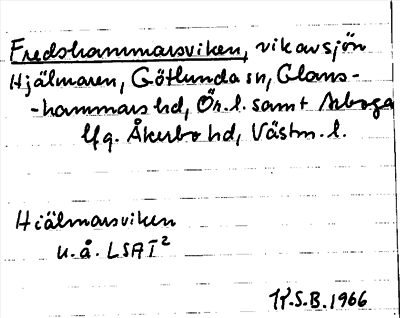 Fredshammarsviken, vik av sjön
Hjälmaren, Götlunda sn, Glans-
-hammars hd, Ör. l. samt Arboga
lfg. Åkerbo hd, Västm. l.
Hjälmarsviken
u. å. LSA T²
K.S.B. 1966